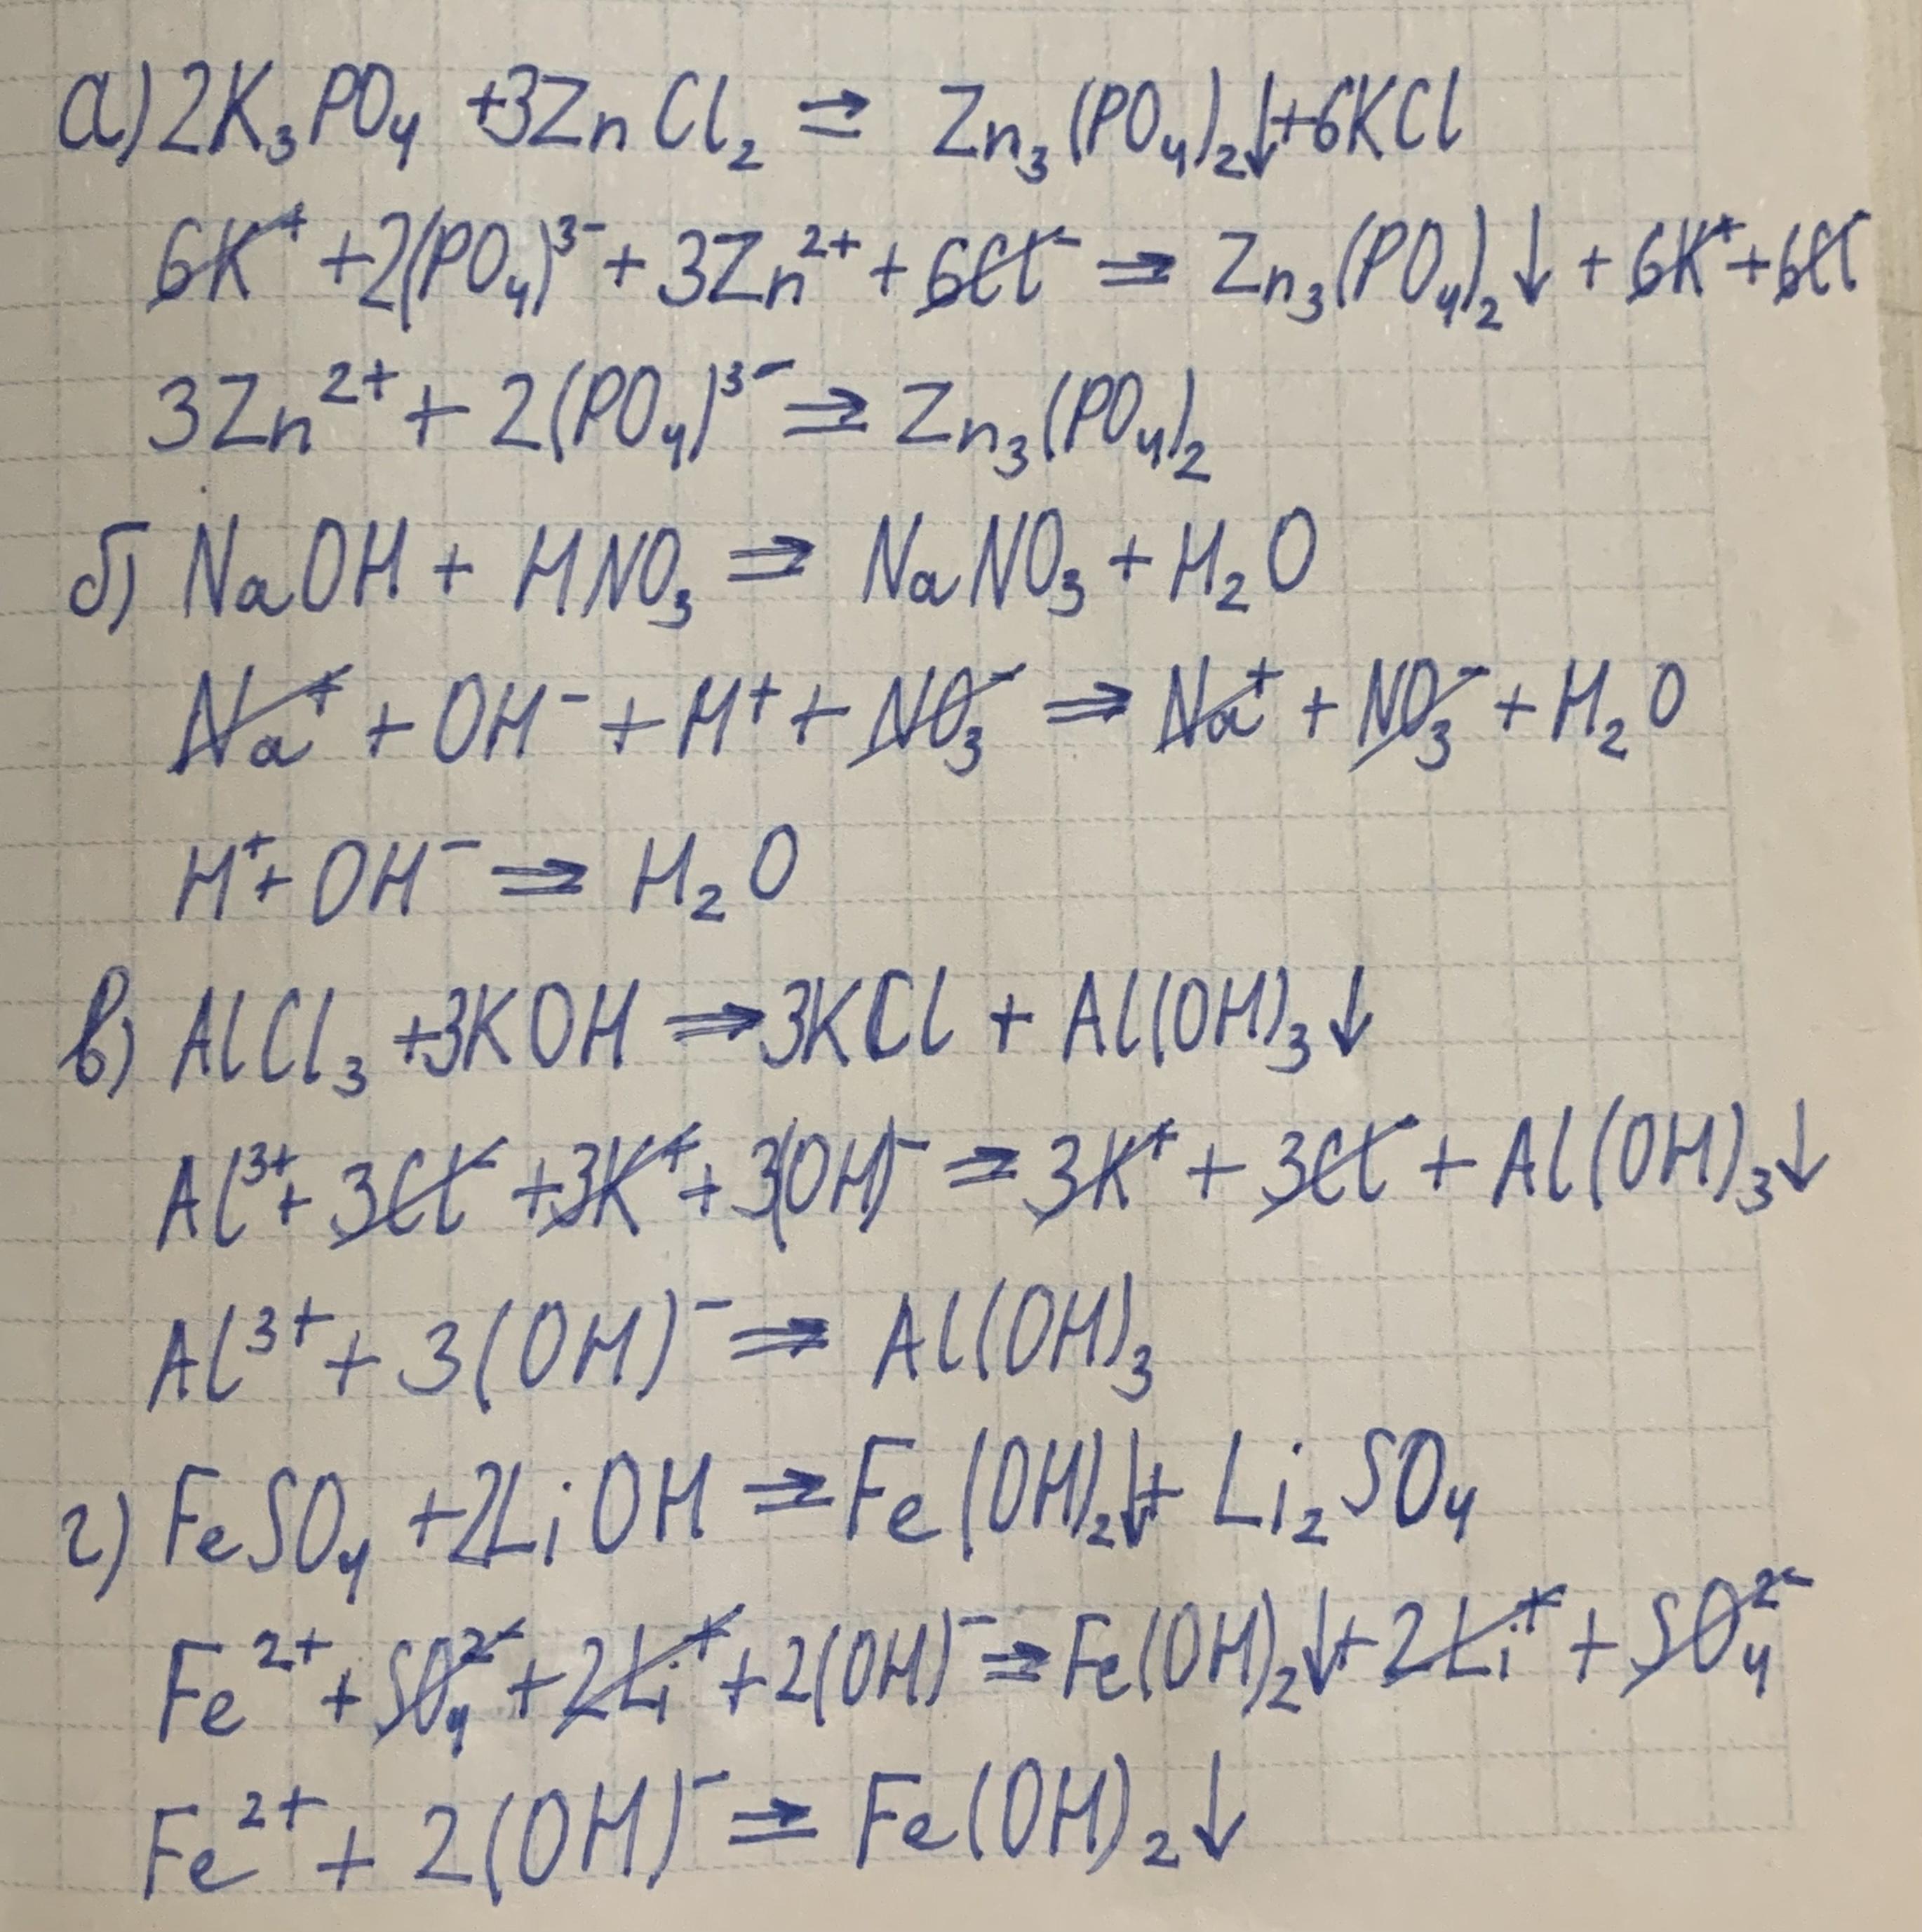 а) 2K₃PO₄ + 3ZnCl₂ ⇉ Zn₃(PO₄)₂↓ + 6KCl
6K⁺ + 2(PO₄)³⁻ + 3Zn²⁺ + 6Cl⁻ ⇉ Zn₃(PO₄)₂↓ + 6K⁺ + 6Cl⁻
3Zn²⁺ + 2(PO₄)³⁻ ⇉ Zn₃(PO₄)₂
б) NaOH + HNO₃ ⇉ NaNO₃ + H₂O
Na⁺ + OH⁻ + H⁺ + NO₃⁻ ⇉ Na⁺ + NO₃⁻ + H₂O
H⁺ + OH⁻ ⇉ H₂O
в) AlCl₃ + 3KOH ⇉ 3KCl + Al(OH)₃↓
Al³⁺ + 3Cl⁻ + 3K⁺ + 3(OH)⁻ ⇉ 3K⁺ + 3Cl⁻ + Al(OH)₃↓
Al³⁺ + 3(OH)⁻ ⇉ Al(OH)₃
г) FeSO₄ + 2LiOH ⇉ Fe(OH)₂↓ + Li₂SO₄
Fe²⁺ + SO₄²⁻ + 2Li⁺ + 2(OH)⁻ ⇉ Fe(OH)₂↓ + 2Li⁺ + SO₄²⁻
Fe²⁺ + 2(OH)⁻ ⇉ Fe(OH)₂↓